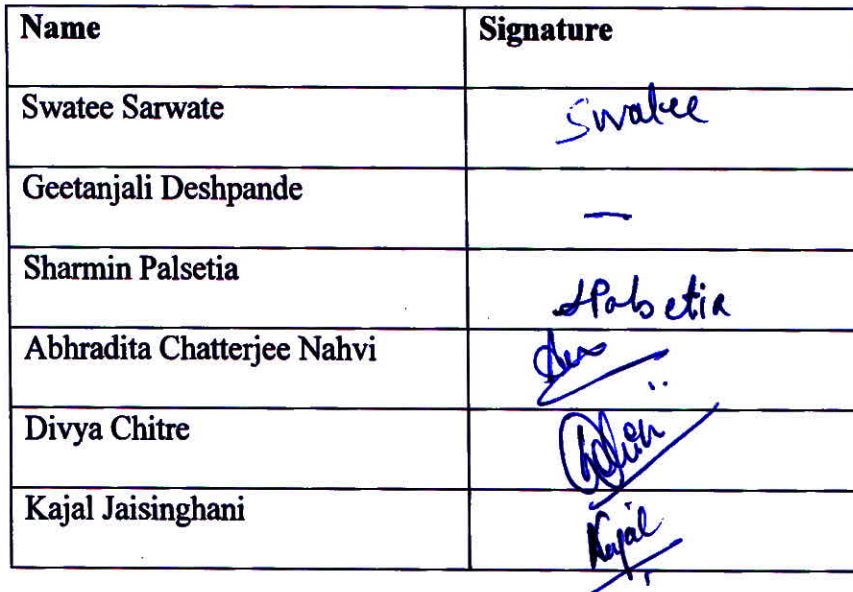 Name Signature
Swatee Sarwate Swatee
Geetanjali Deshpande —
Sharmin Palsetia SPalsetia
Abhradita Chatterjee Nahvi
Divya Chitre
Kajal Jaisinghani Kajal